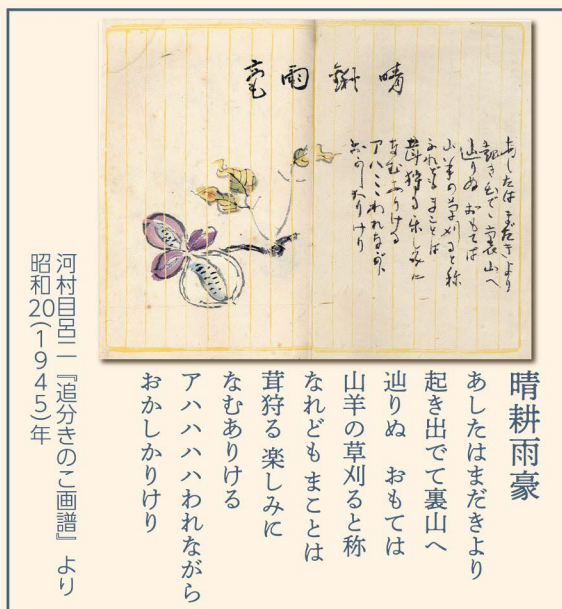 晴
雨
あしたはまだきより
起き出でて裏山へ
辿りぬ おもては
山羊の草刈ると称
なれどもまことは
茸狩る楽しみに
なむありける
晴耕雨豪
あしたはまだきより
起き出でて裏山へ
辿りぬ おもては
山羊の草刈ると称
なれども まことは
茸狩る 楽しみに
なむありける
アハハハハわれながら
おかしかりけり
河村目呂二『追分きのこ画譜』より
昭和20(1945)年